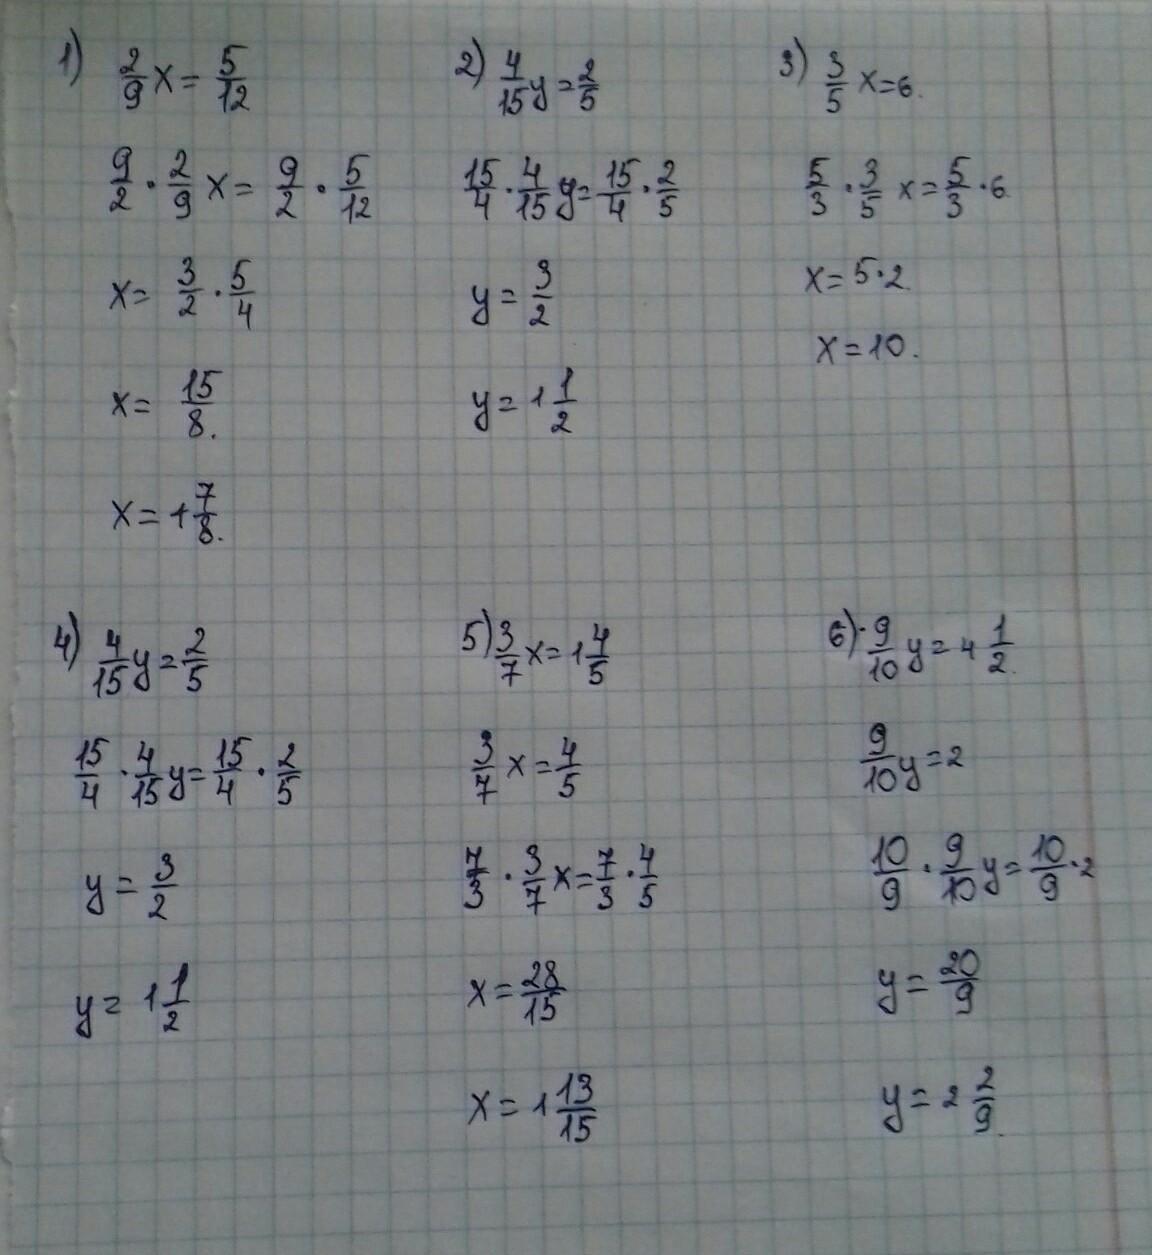 1) 2/9 x = 5/12
9/2 · 2/9 x = 9/2 · 5/12
x = 3/2 · 5/4
x = 15/8.
x = 1 7/8.
2) 4/15 y = 2/5
15/4 · 4/15 y = 15/4 · 2/5
y = 3/2
y = 1 1/2
3) 3/5 x = 6.
5/3 · 3/5 x = 5/3 · 6.
x = 5 · 2.
x = 10.
4) 4/15 y = 2/5
15/4 · 4/15 y = 15/4 · 2/5
y = 3/2
y = 1 1/2
5) 3/7 x = 1 4/5
3/7 x = 4/5
7/3 · 3/7 x = 7/3 · 4/5
x = 28/15
x = 1 13/15
6) 9/10 y = 4 1/2.
9/10 y = 2
10/9 · 9/10 y = 10/9 · 2
y = 20/9
y = 2 2/9.